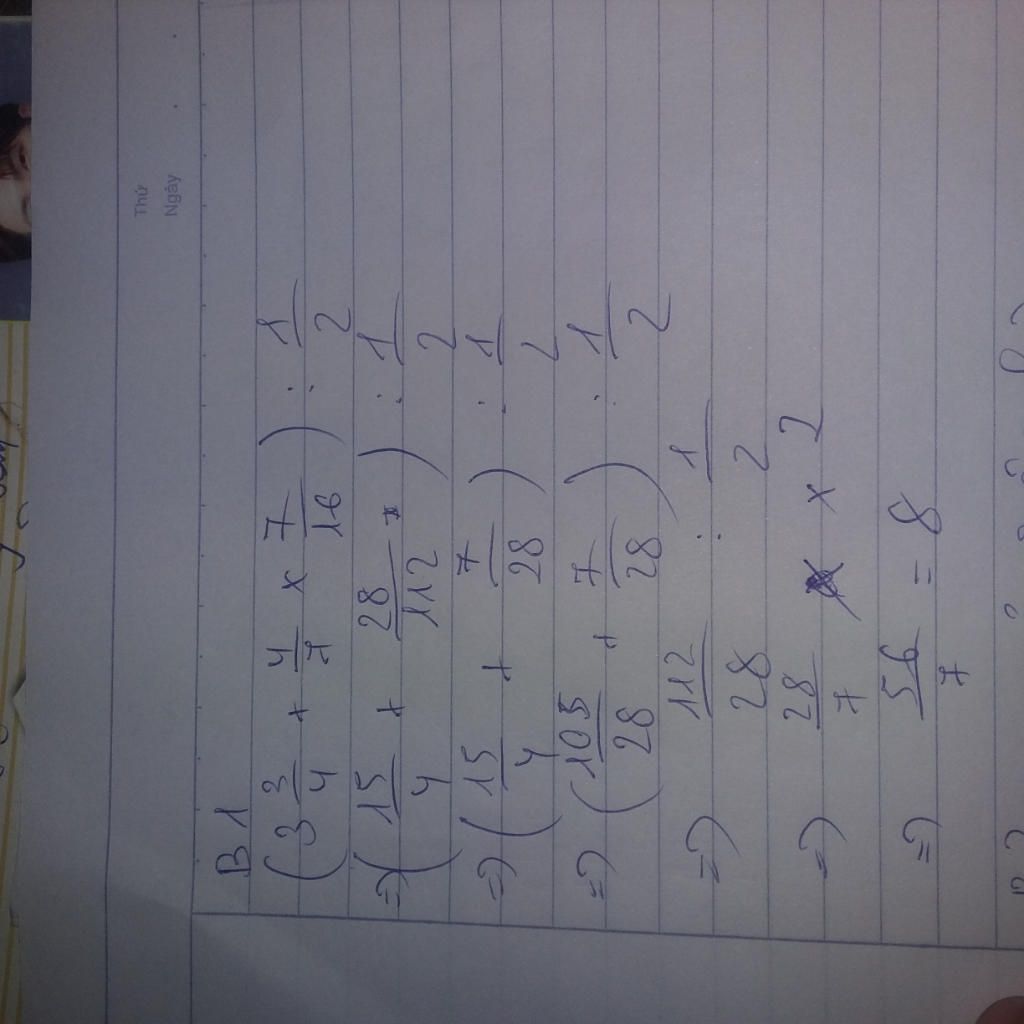 Thứ
Ngày
B1
(3 3/4 + 4/7 x 7/16) : 1/2
=> (15/4 + 28/112) : 1/2
=> (15/4 + 7/28) : 1/2
=> (105/28 + 7/28) : 1/2
=> 112/28 : 1/2
=> 28/7 x 2
=> 56/7 = 8